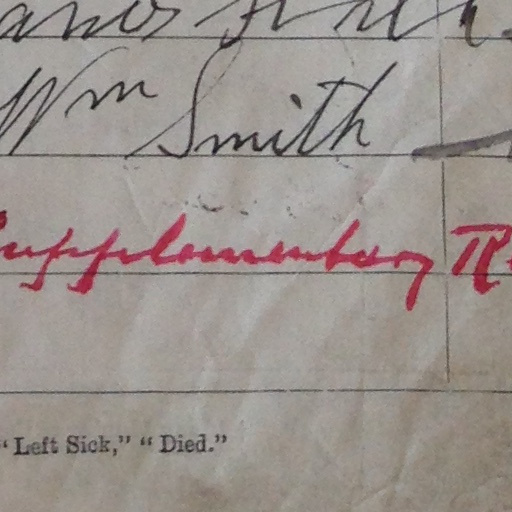 Wm Smith
Supplementary
"Left Sick," "Died."